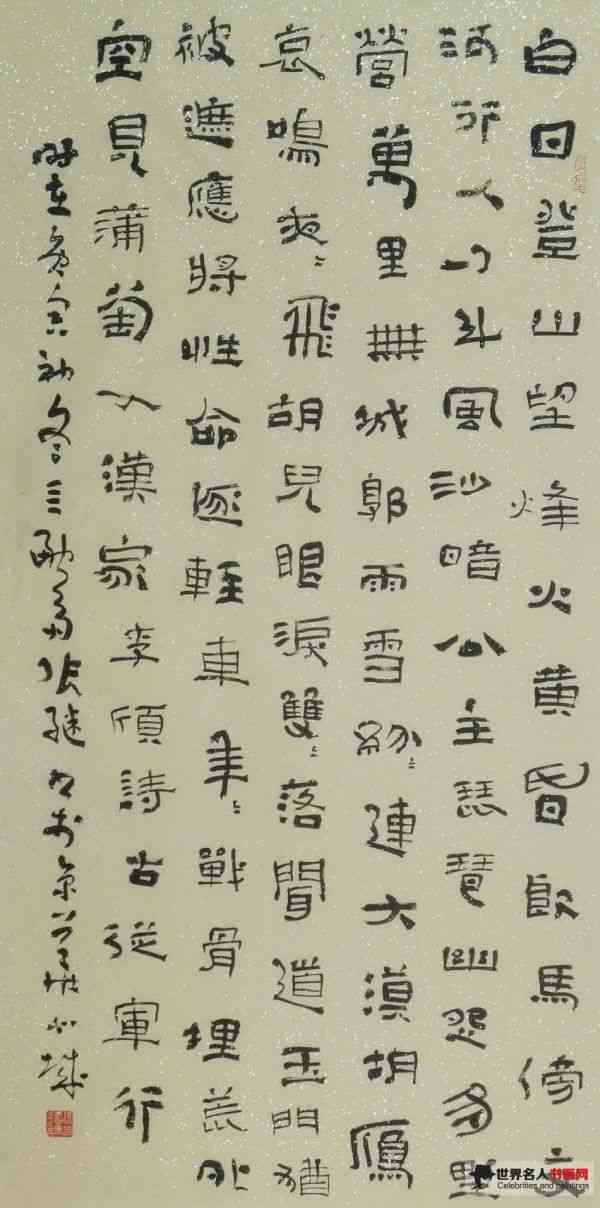 白日登山望烽火黄昏飲馬傍交
河行人刁斗風沙暗公主琵琶幽怨多野
營萬里無城郭雨雪紛〻連大漠胡鴈
哀鳴夜〻飛胡兒眼淚雙〻落聞道玉門猶
被遮應將性命逐輕車年〻戰骨埋荒外
空見蒲萄入漢家李頎詩古從軍行
時在庚寅初冬張継書於京
世界名人书画网
Celebrities and paintings